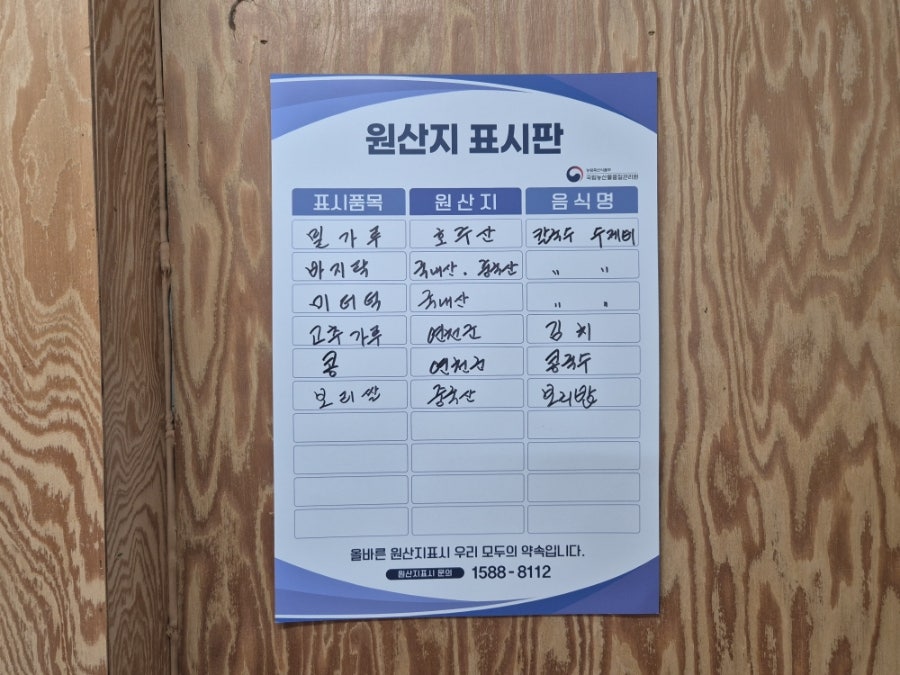 원산지 표시판
농림축산식품부
국립농산물품질관리원
표시품목 원산지 음식명
밀가루 호주산 칼국수 수제비
바지락 국내산. 중국산 " "
미더덕 국내산 " "
고추가루 연천군 김치
콩 연천군 콩국수
보리쌀 중국산 보리밥
올바른 원산지표시 우리 모두의 약속입니다.
원산지표시 문의 1588-8112